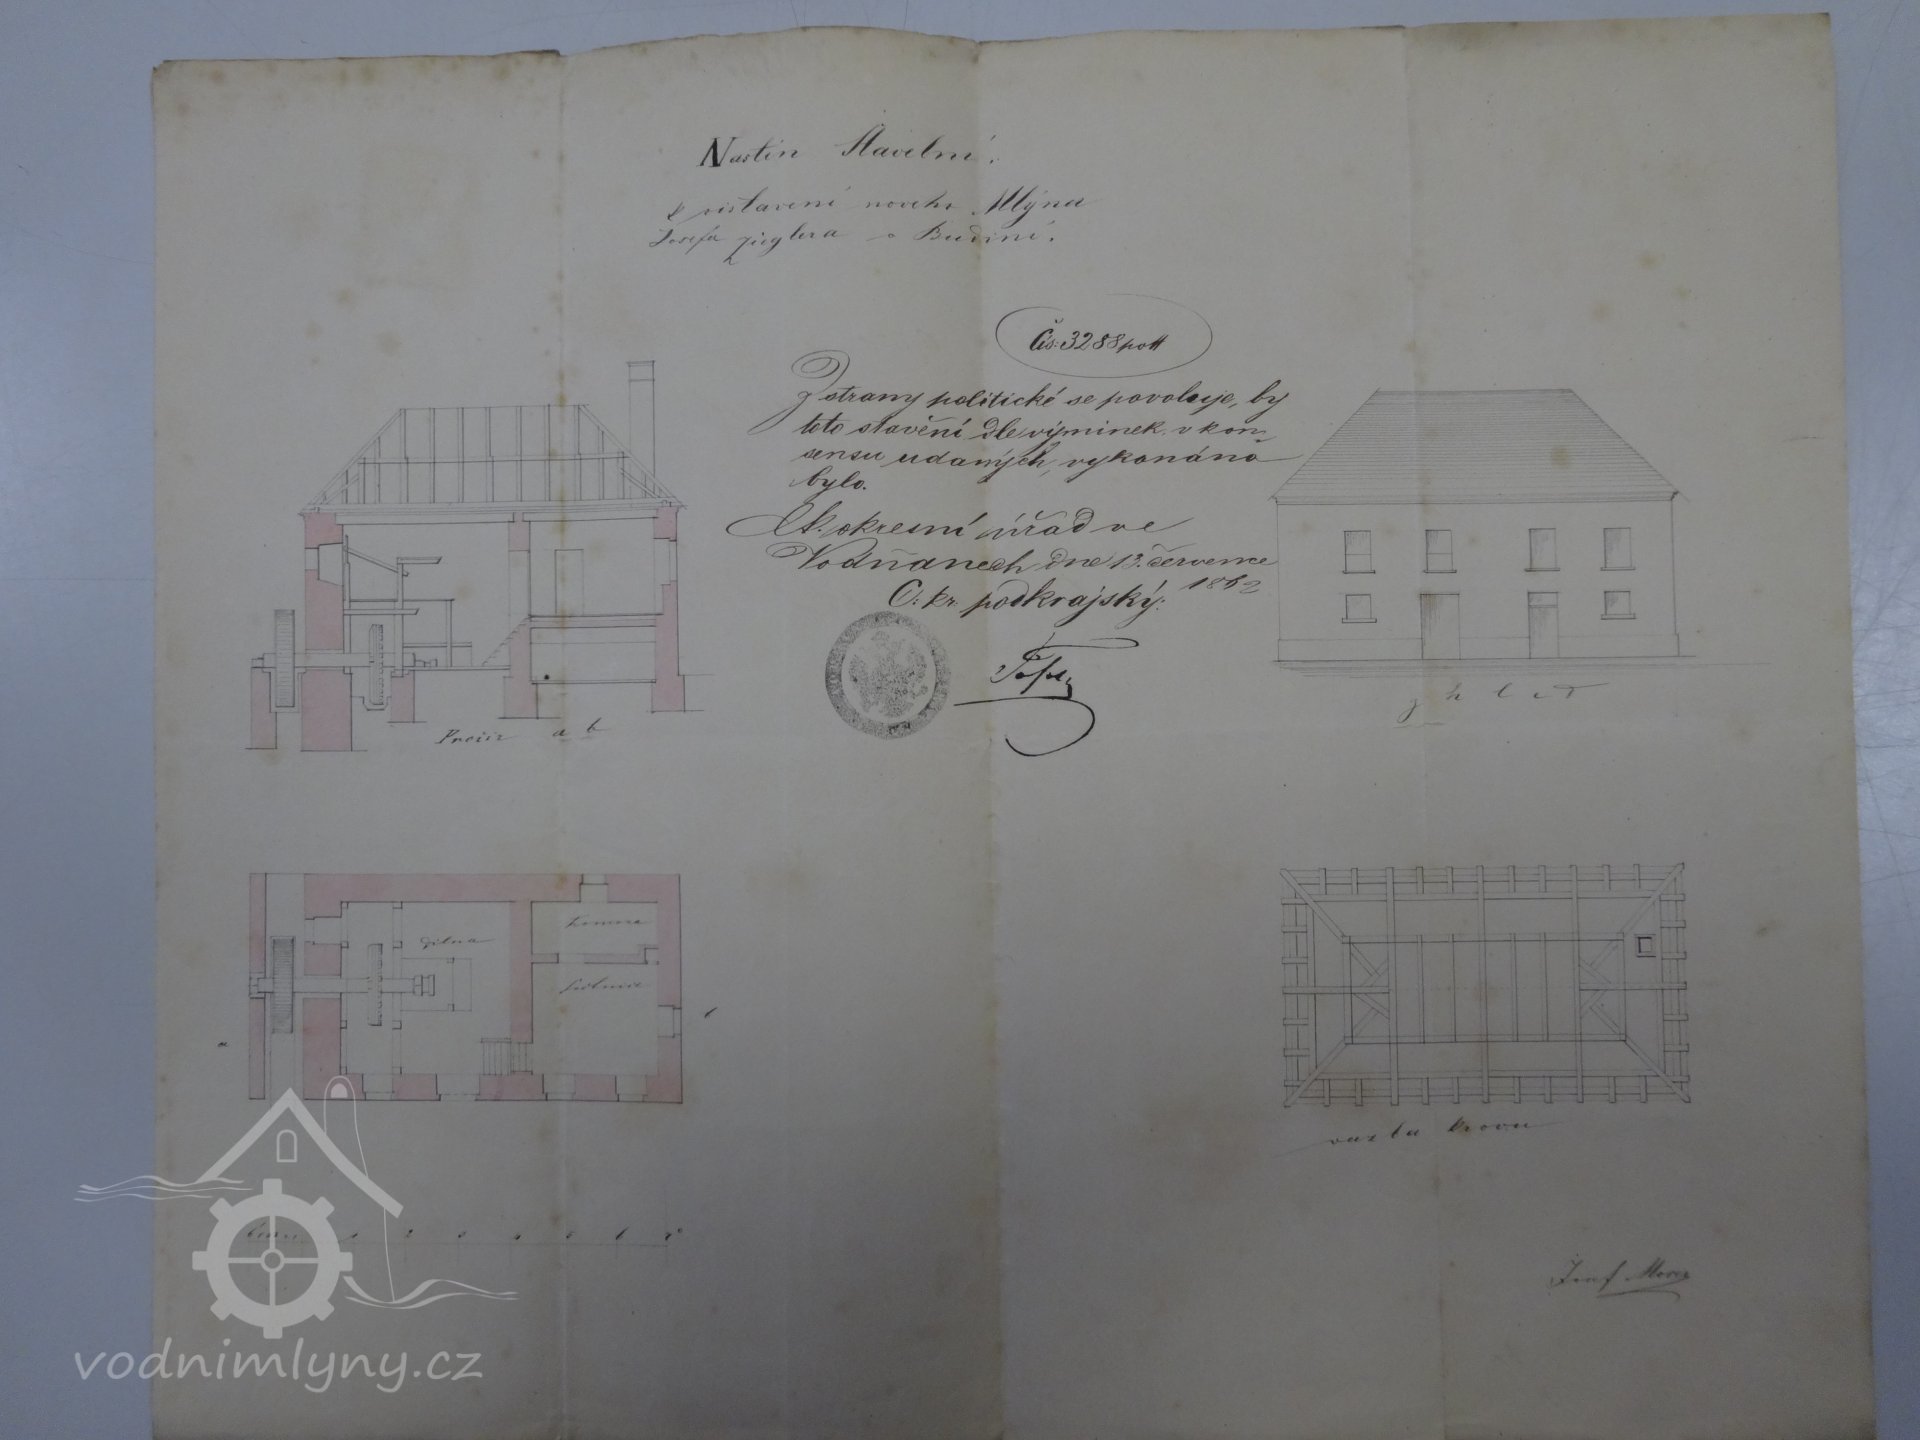 Nastin Stavební.
k vistavení noveho Mlýna
Josefa Zieglera v Budiní.
Čís: 3288 polt
Z strany politické se povoluje, by
toto stavění dle výminek v kon-
sensu udaných, vykonáno
bylo.
K. okresní úřad ve
Vodňanech dne 13. července
1862
C: kr: podkrajský:
Proiiz a b
z h l e d
dílna
komora
Světnice
a
b
vazba krovu
1 2 3 4 5 6 7°
Josef
vodnimlyny.cz